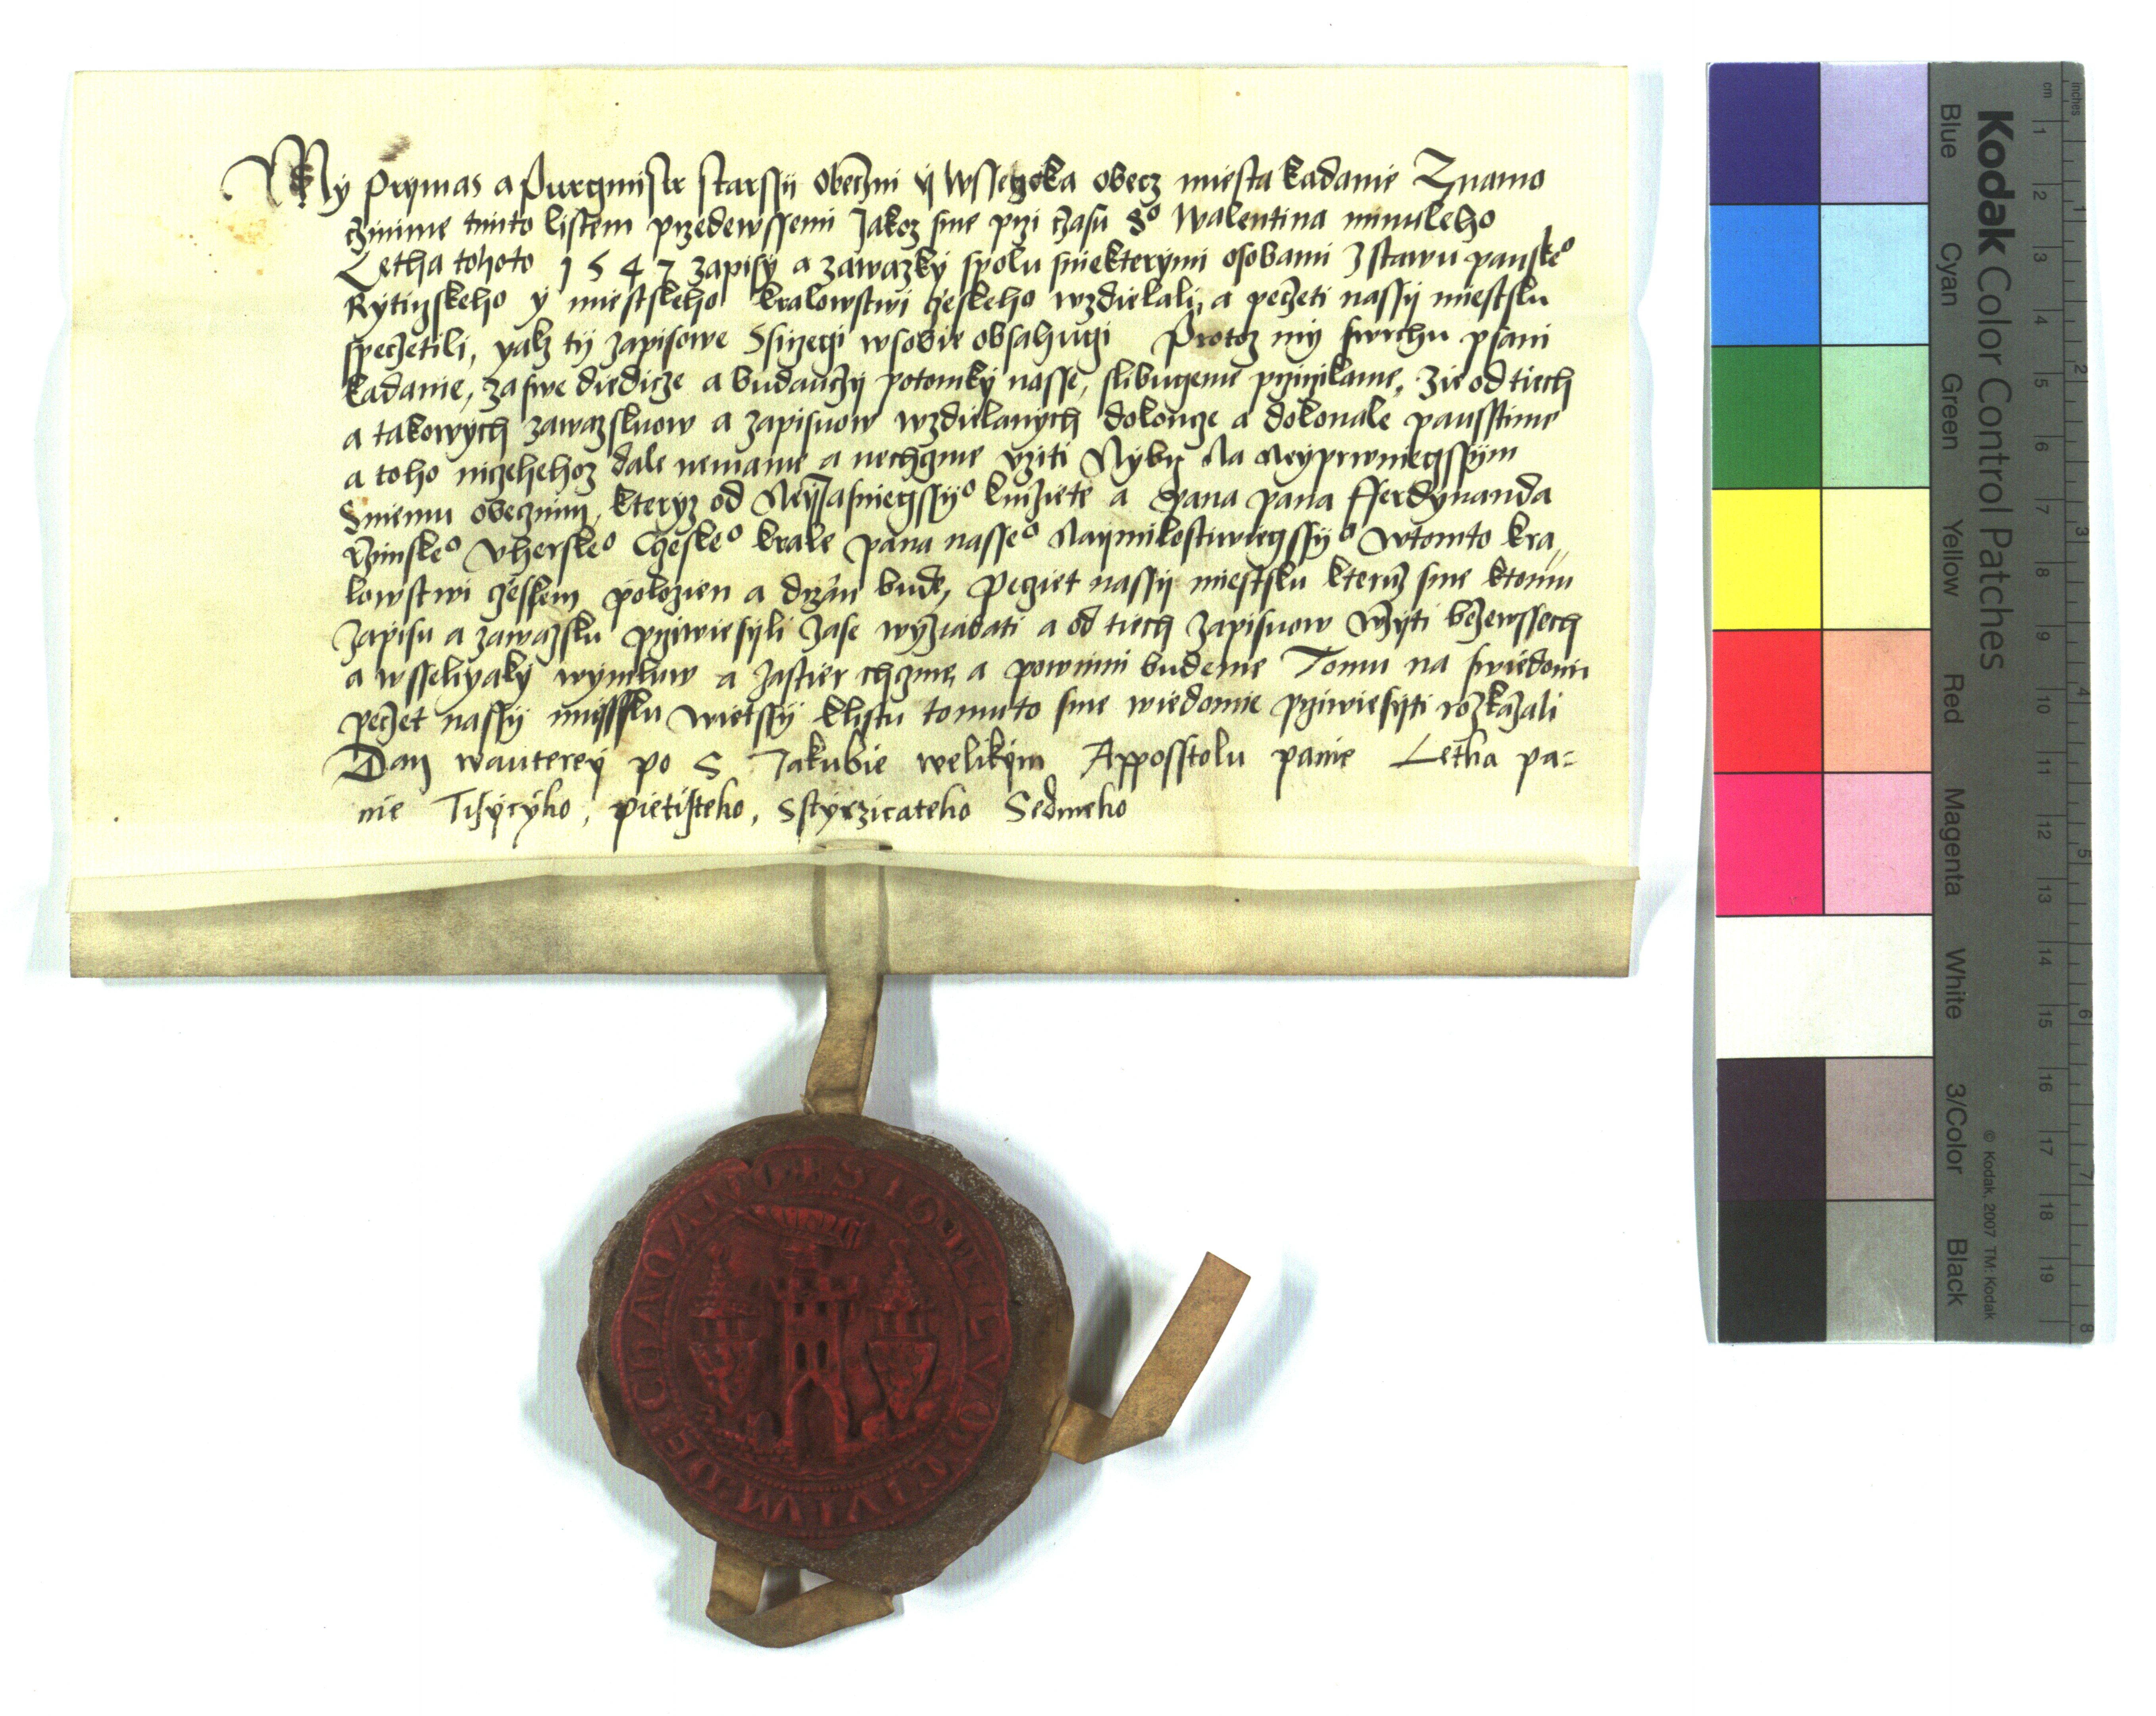 My Prymas a Purgmistr starssij obeczni y wssegka obecz miesta Kadanie Znamo
czinime tiimto listem przedewssemi Jakoz sme przi czasu So Walentina minuleho
Letha tohoto 1547 zapisy a zawazky spolu sniekterymi osobami Zstawu panskeo
Rytirzskeho y miestskeho kralowstwi czeskeho wzdielali, a peczeti nassij miestsku
speczetili, yakz tij zapisowe Ssirzegi wsobie obsahugi Protoz my swrchu psani
Kadanie, za swe diedicze a buduaczy potomky nasse, slibugeme przirzikame, zie od tiech
a takowych zawazskuow a zapisuow wzdielanych dokoncze a dokonale pausstime
a toho niczehehoz dale nemame a nechczme vziti Nybrz Na Neyprwniegssym
Sniemu obecznim, kteryz od Neyjasniegssyo kniziete a Pana pana Fferdynanda
Rzimskeo Vherskeo Czeskeo krale pana nasseo Naymilostiwiegssyo Wtomto kra„
lowstwi czeskem polozien a drzan bude, Peczet nassij miestsku kteruz sme ktomu
Zapisu a zawazsku przwiesyli Zase wyziadati a od tiech Zapisuow Wzyti bezewssech
a wsseliyaky wymluw a Zastier chczme, a powinni budeme Tomu na swiedomi
peczet nassy miestsku wietssy klistu tomuto sme wiedomie przwiesyti rozkazali
Dan wauterey po S Jakubie welikym Apposstolu panie Letha pa=
nie Tisycyho, pietisteho, Sstyrzicateho Sedmeho
SIGILLVM CIVIVM DE CHADANO
Kodak Color Control Patches
Blue
Cyan
Green
Yellow
Red
Magenta
White
3/Color
Black
© Kodak, 2007 TM: Kodak
cm 1 2 3 4 5 6 7 8 9 10 11 12 13 14 15 16 17 18 19
inches 1 2 3 4 5 6 7 8